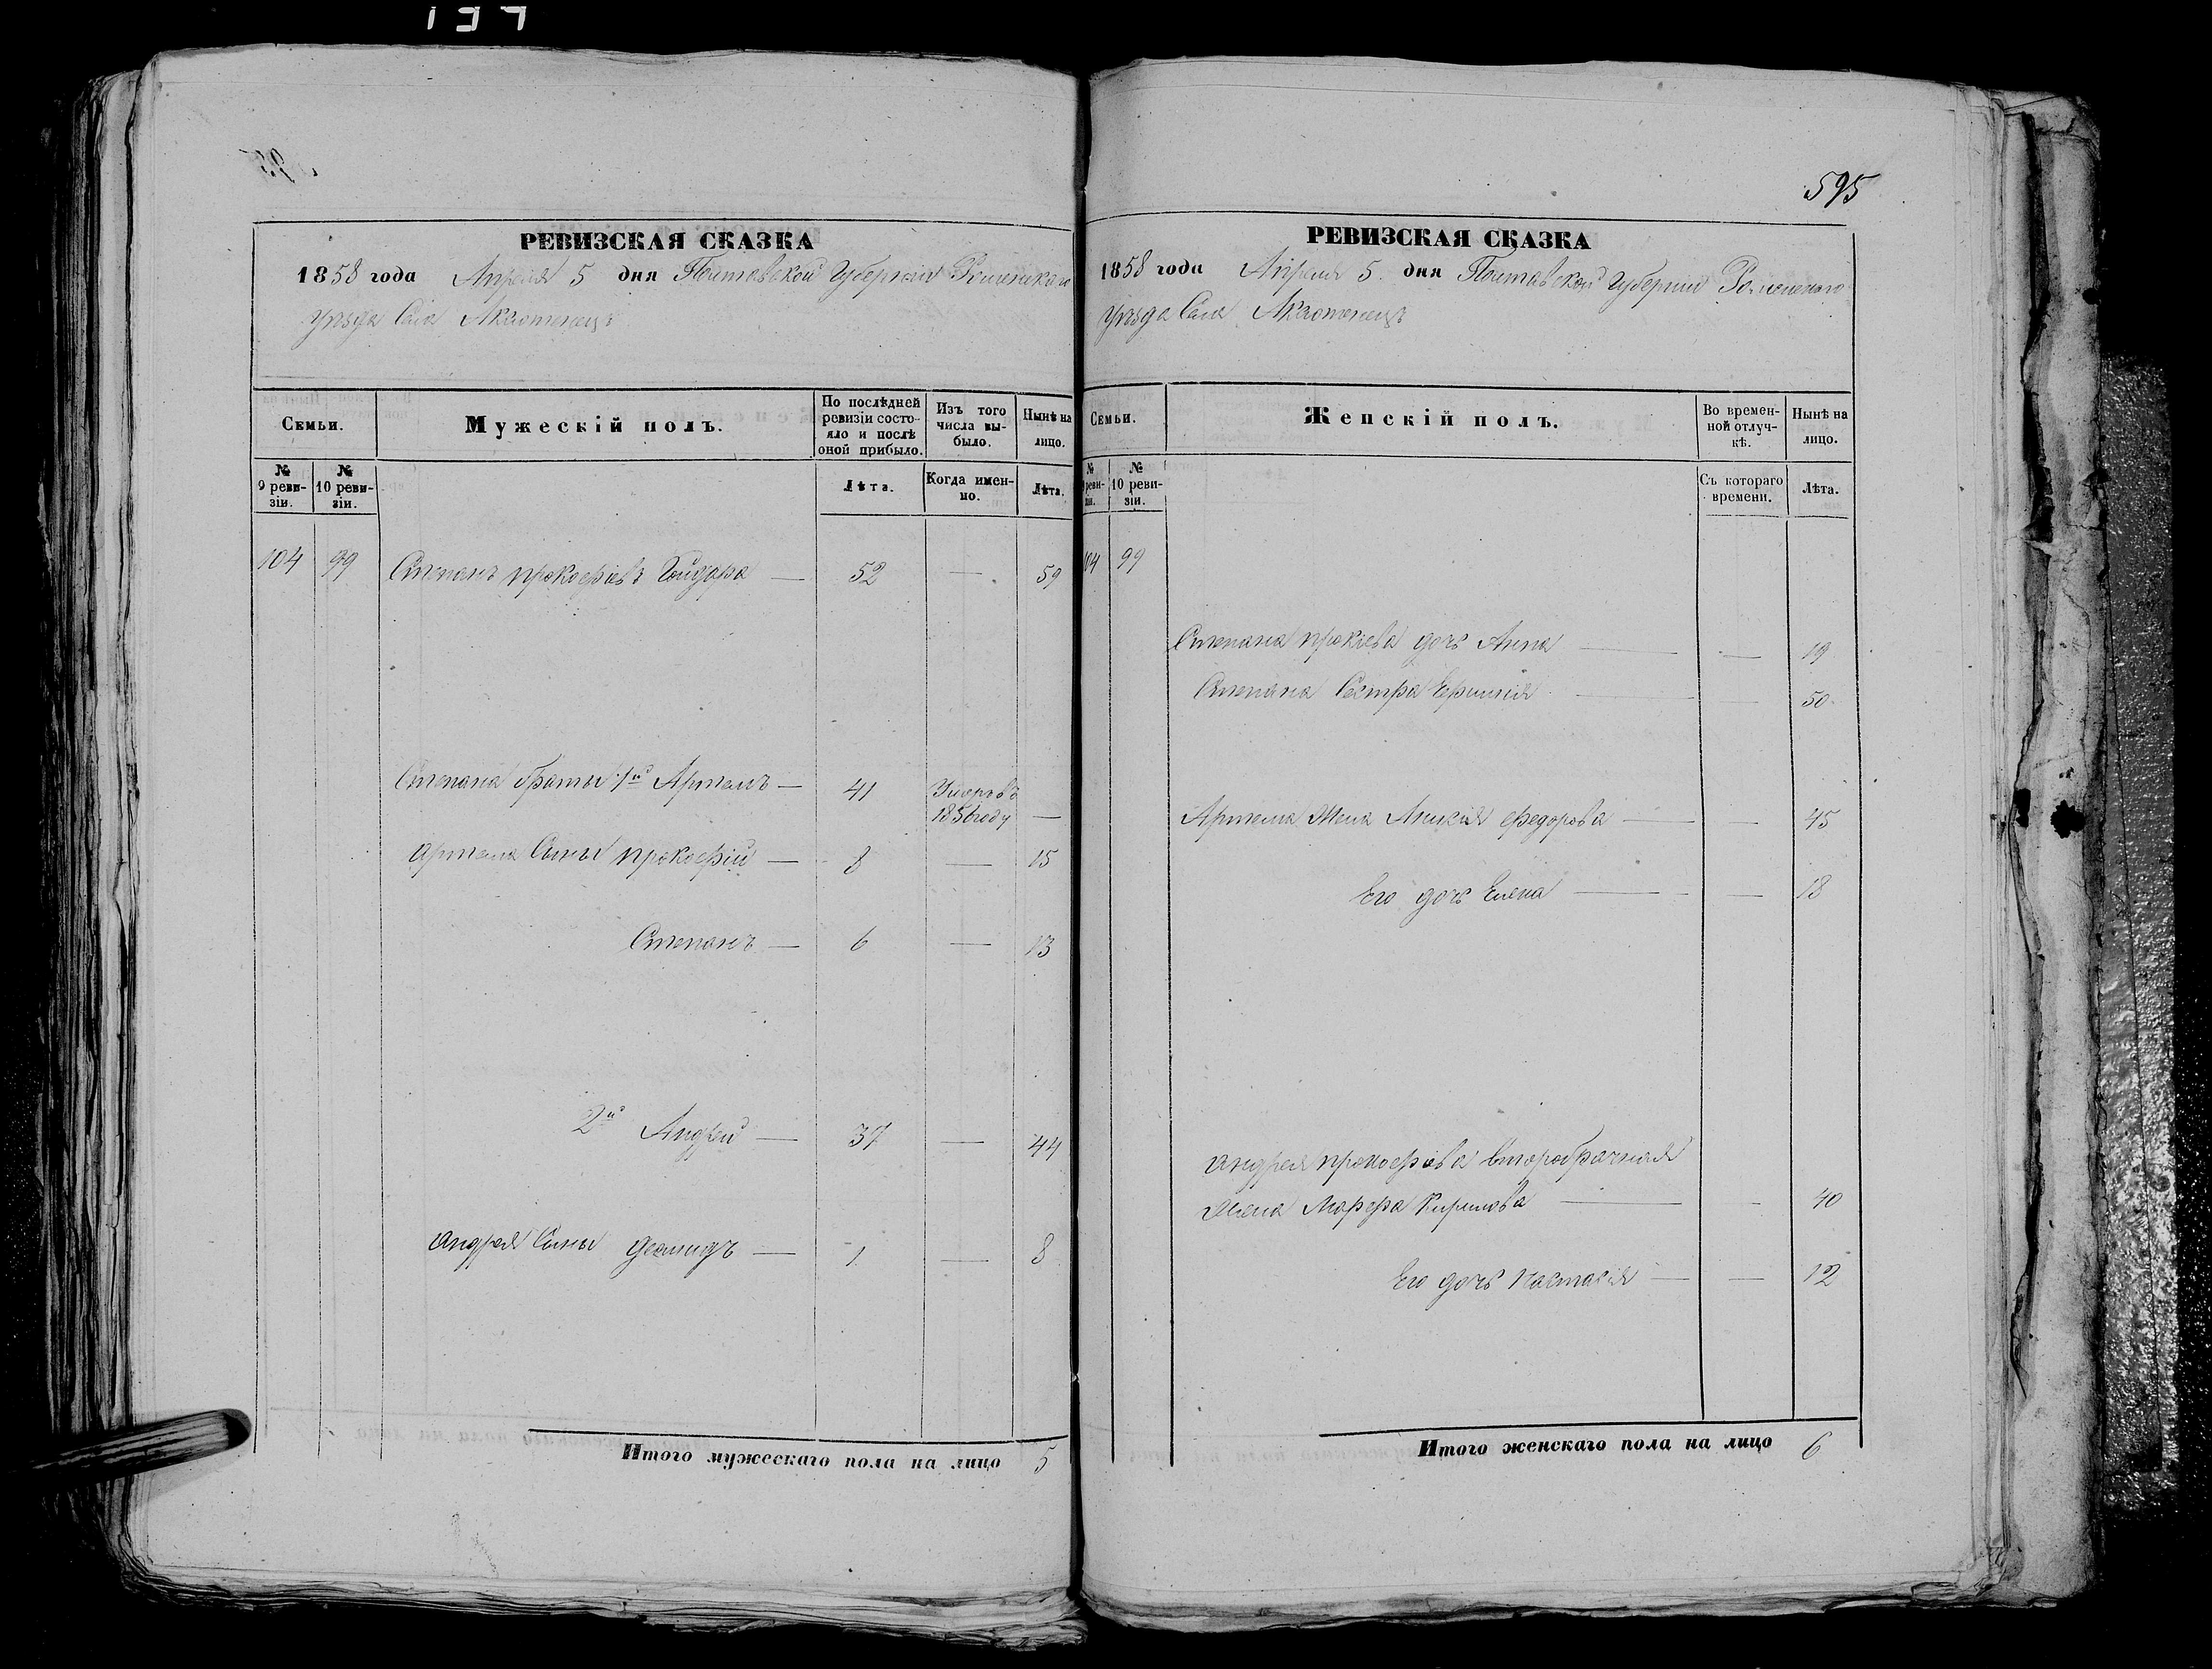 137
РЕВИЗСКАЯ СКАЗКА
1858 года Апреля 5 дня Полтавской Губернии Роменскаго
уезда Села
Семьи.
Мужескій полъ.
По послѣдней ревизіи состояло и послѣ оной прибыло.
Изъ того числа выбыло.
Нынѣ на лицо.
№ 9 ревизіи.
№ 10 ревизіи.
Лѣта.
Когда именно.
Лѣта.
104 99 Степанъ Прокофіевъ Гайдара — 52 — 59
Степана братья 1й Артемъ — 41 Умеръ въ
185 году —
Артема Сыны Прокофій — 8 — 15
Степанъ — 6 — 13
2й Андрей — 37 — 44
Андрея Сыны — 1 — 8
Итого мужескаго пола на лицо 5
595
РЕВИЗСКАЯ СКАЗКА
1858 года Апреля 5 дня Полтавской Губернии Роменского
уезда Села
Семьи.
Женскій полъ.
Во временной отлучкѣ.
Нынѣ на лицо.
№ реви-
№ 10 ревизіи.
Съ котораго времени.
Лѣта.
104 99
Степана дочь Анна — — 19
Степана Сестра — — 50
Артема Жена Федорова — — 45
Его дочь Елена — — 18
Андрея Прокофіева второбрачная
жена Марфа Кирилова — — 40
Его дочь Настасія — — 12
Итого женскаго пола на лицо 6